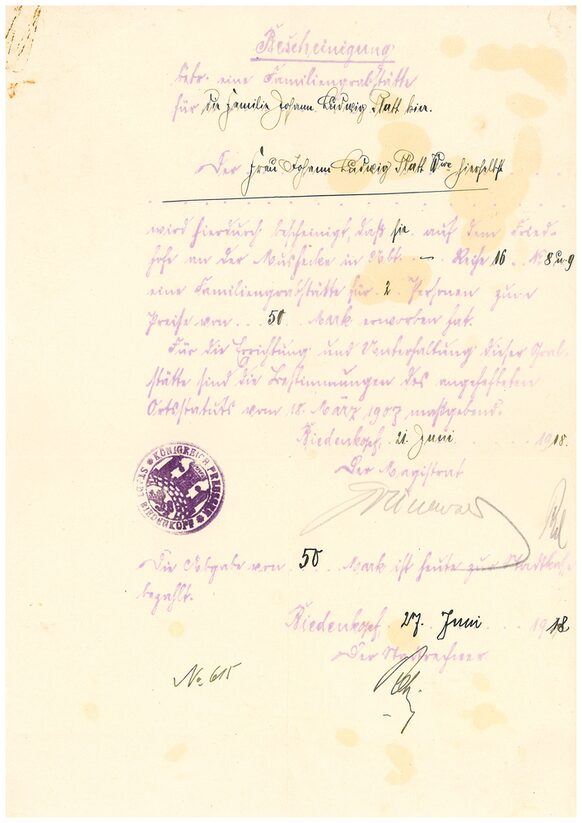 Bescheinigung
betr. eine Familiengrabstätte
für die Familie Johann Ludwig Platt hier.
Der Frau Johann Ludwig Platt Wwe. hierselbst
wird hierdurch bescheinigt, daß sie auf dem Fried-
hofe an der Mushecke in Abt. — Reihe 16 No 8 u. 9
eine Familiengrabstätte für 2 Personen zum
Preise von 50 Mark erworben hat.
Für die Errichtung und Unterhaltung dieser Grab-
stätte sind die Bestimmungen des angehefteten
Ortsstatuts vom 18. März 1907 maßgebend.
Biedenkopf, 21. Juni 1918.
Der Magistrat
KÖNIGREICH PREUSSEN
STADT BIEDENKOPF
Die Abgabe von 50 Mark ist heute zur Stadtkasse
bezahlt.
Biedenkopf, 27. Juni 1918
Der Stadtrechner
No 615